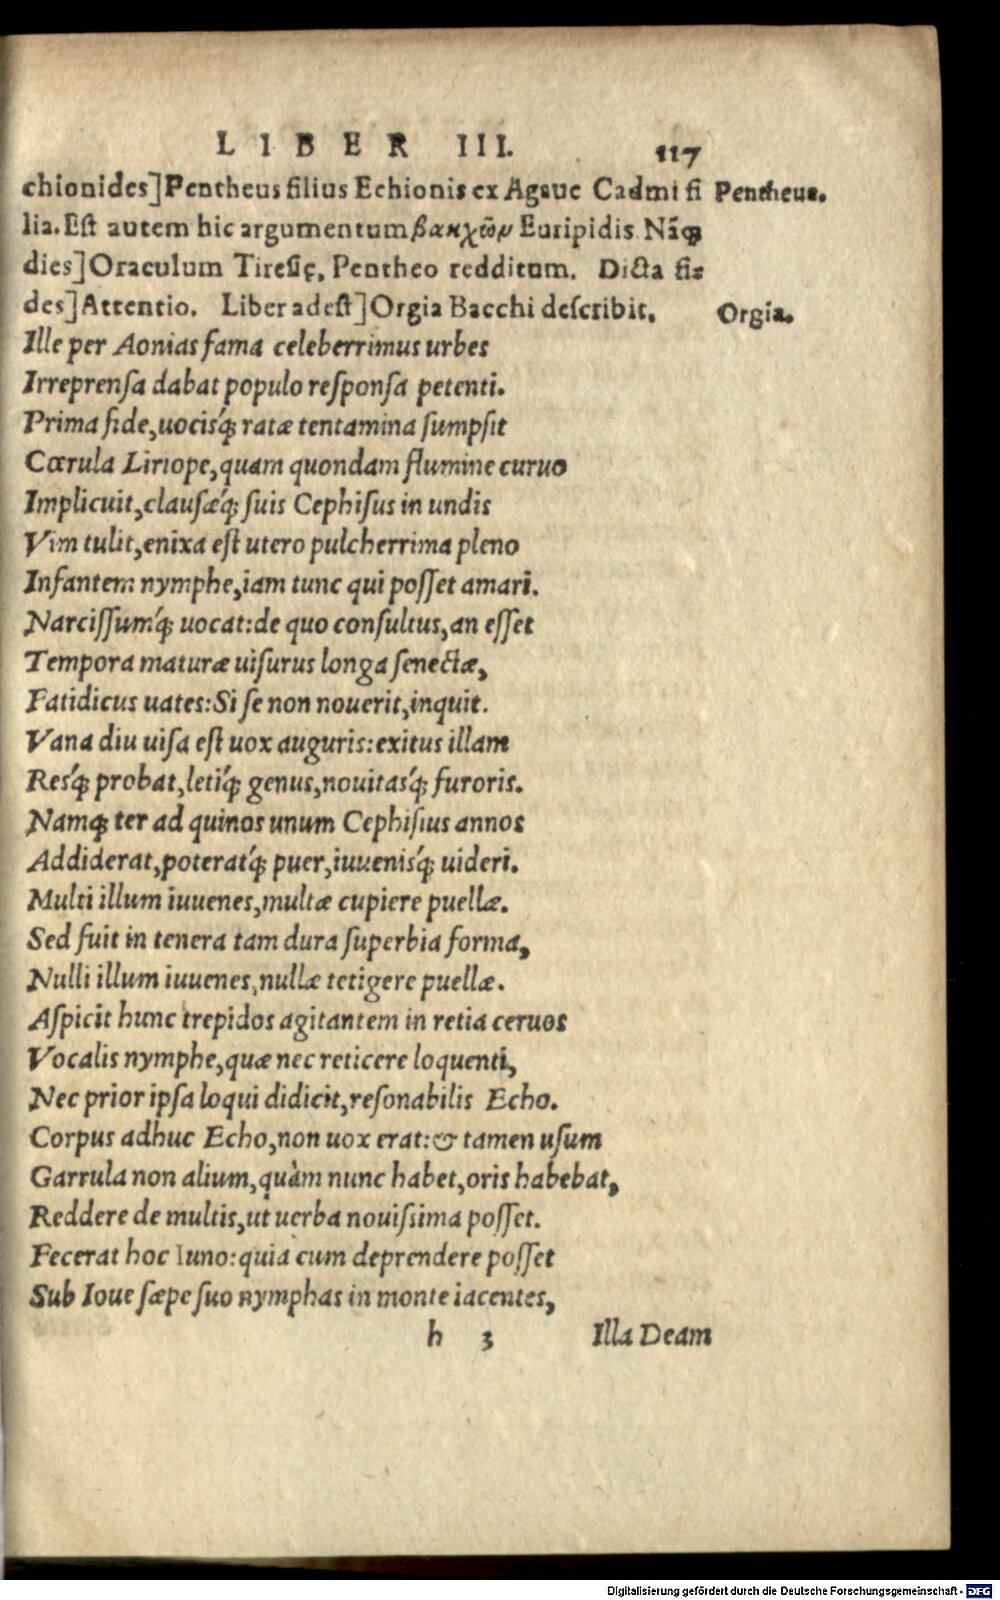 LIBER III. 117
chionides]Pentheus filius Echionis ex Agaue Cadmi fi Pentheus.
lia.Est autem hic argumentum βακχῶν Euripidis Nāꝗ
dies]Oraculum Tiresię, Pentheo redditum. Dicta fi=
des]Attentio. Liber adest]Orgia Bacchi describit. Orgia.
Ille per Aonias fama celeberrimus urbes
Irreprensa dabat populo responsa petenti.
Prima fide,uocisq́; ratæ tentamina sumpsit
Cœrula Liriope,quam quondam flumine curuo
Implicuit,clausæq́; suis Cephisus in undis
Vim tulit,enixa est utero pulcherrima pleno
Infantem nymphe,iam tunc qui posset amari.
Narcissumq́; uocat:de quo consultus,an esset
Tempora maturæ uisurus longa senectæ,
Fatidicus uates:Si se non nouerit,inquit.
Vana diu uisa est uox auguris:exitus illam
Resq́; probat,letiq́; genus,nouitasq́; furoris.
Namq; ter ad quinos unum Cephisius annos
Addiderat,poteratq́; puer,iuuenisq́; uideri.
Multi illum iuuenes,multæ cupiere puellæ.
Sed fuit in tenera tam dura superbia forma,
Nulli illum iuuenes,nullæ tetigere puellæ.
Aspicit hunc trepidos agitantem in retia ceruos
Vocalis nymphe,quæ nec reticere loquenti,
Nec prior ipsa loqui didicit,resonabilis Echo.
Corpus adhuc Echo,non uox erat:& tamen usum
Garrula non alium,quàm nunc habet,oris habebat,
Reddere de multis,ut uerba nouissima posset.
Fecerat hoc Iuno:quia cum deprendere posset
Sub Ioue sæpe suo nymphas in monte iacentes,
h 3 Illa Deam
Digitalisierung gefördert durch die Deutsche Forschungsgemeinschaft - DFG